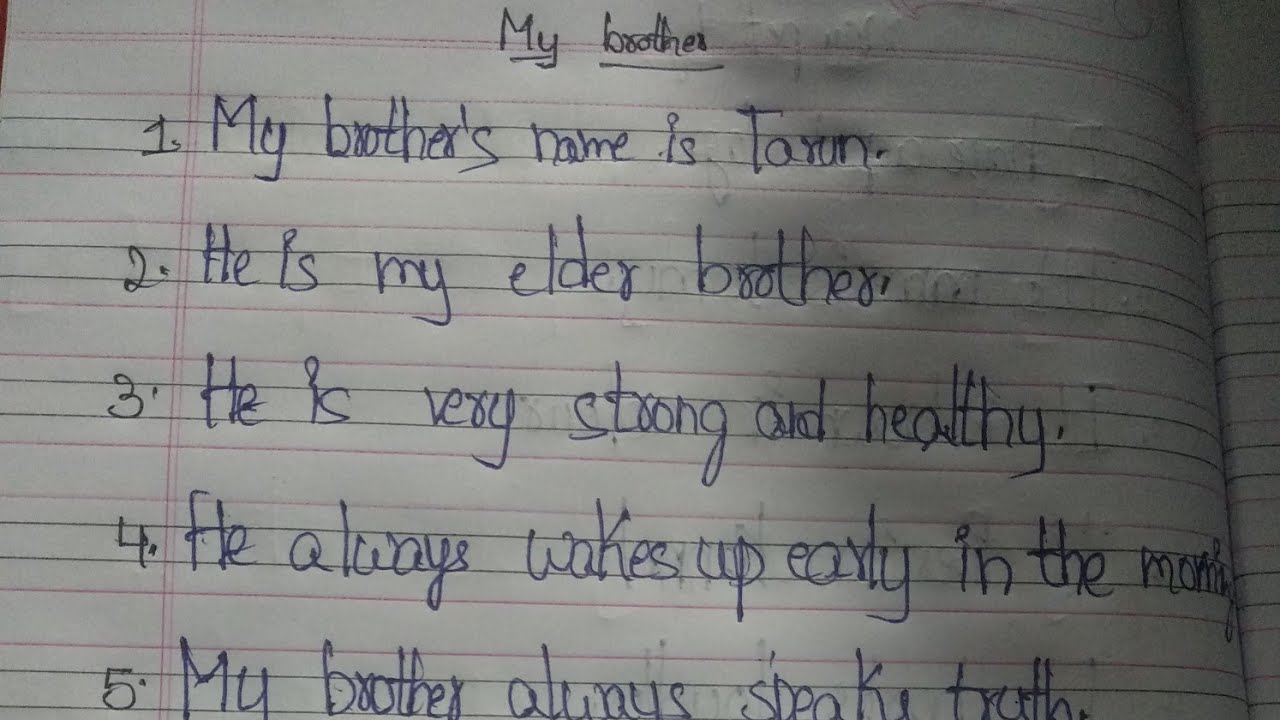 My brother
1. My brother's name is Tarun.
2. He is my elder brother.
3. He is very strong and healthy.
4. He always wakes up early in the morning
5. My brother always speaks truth.